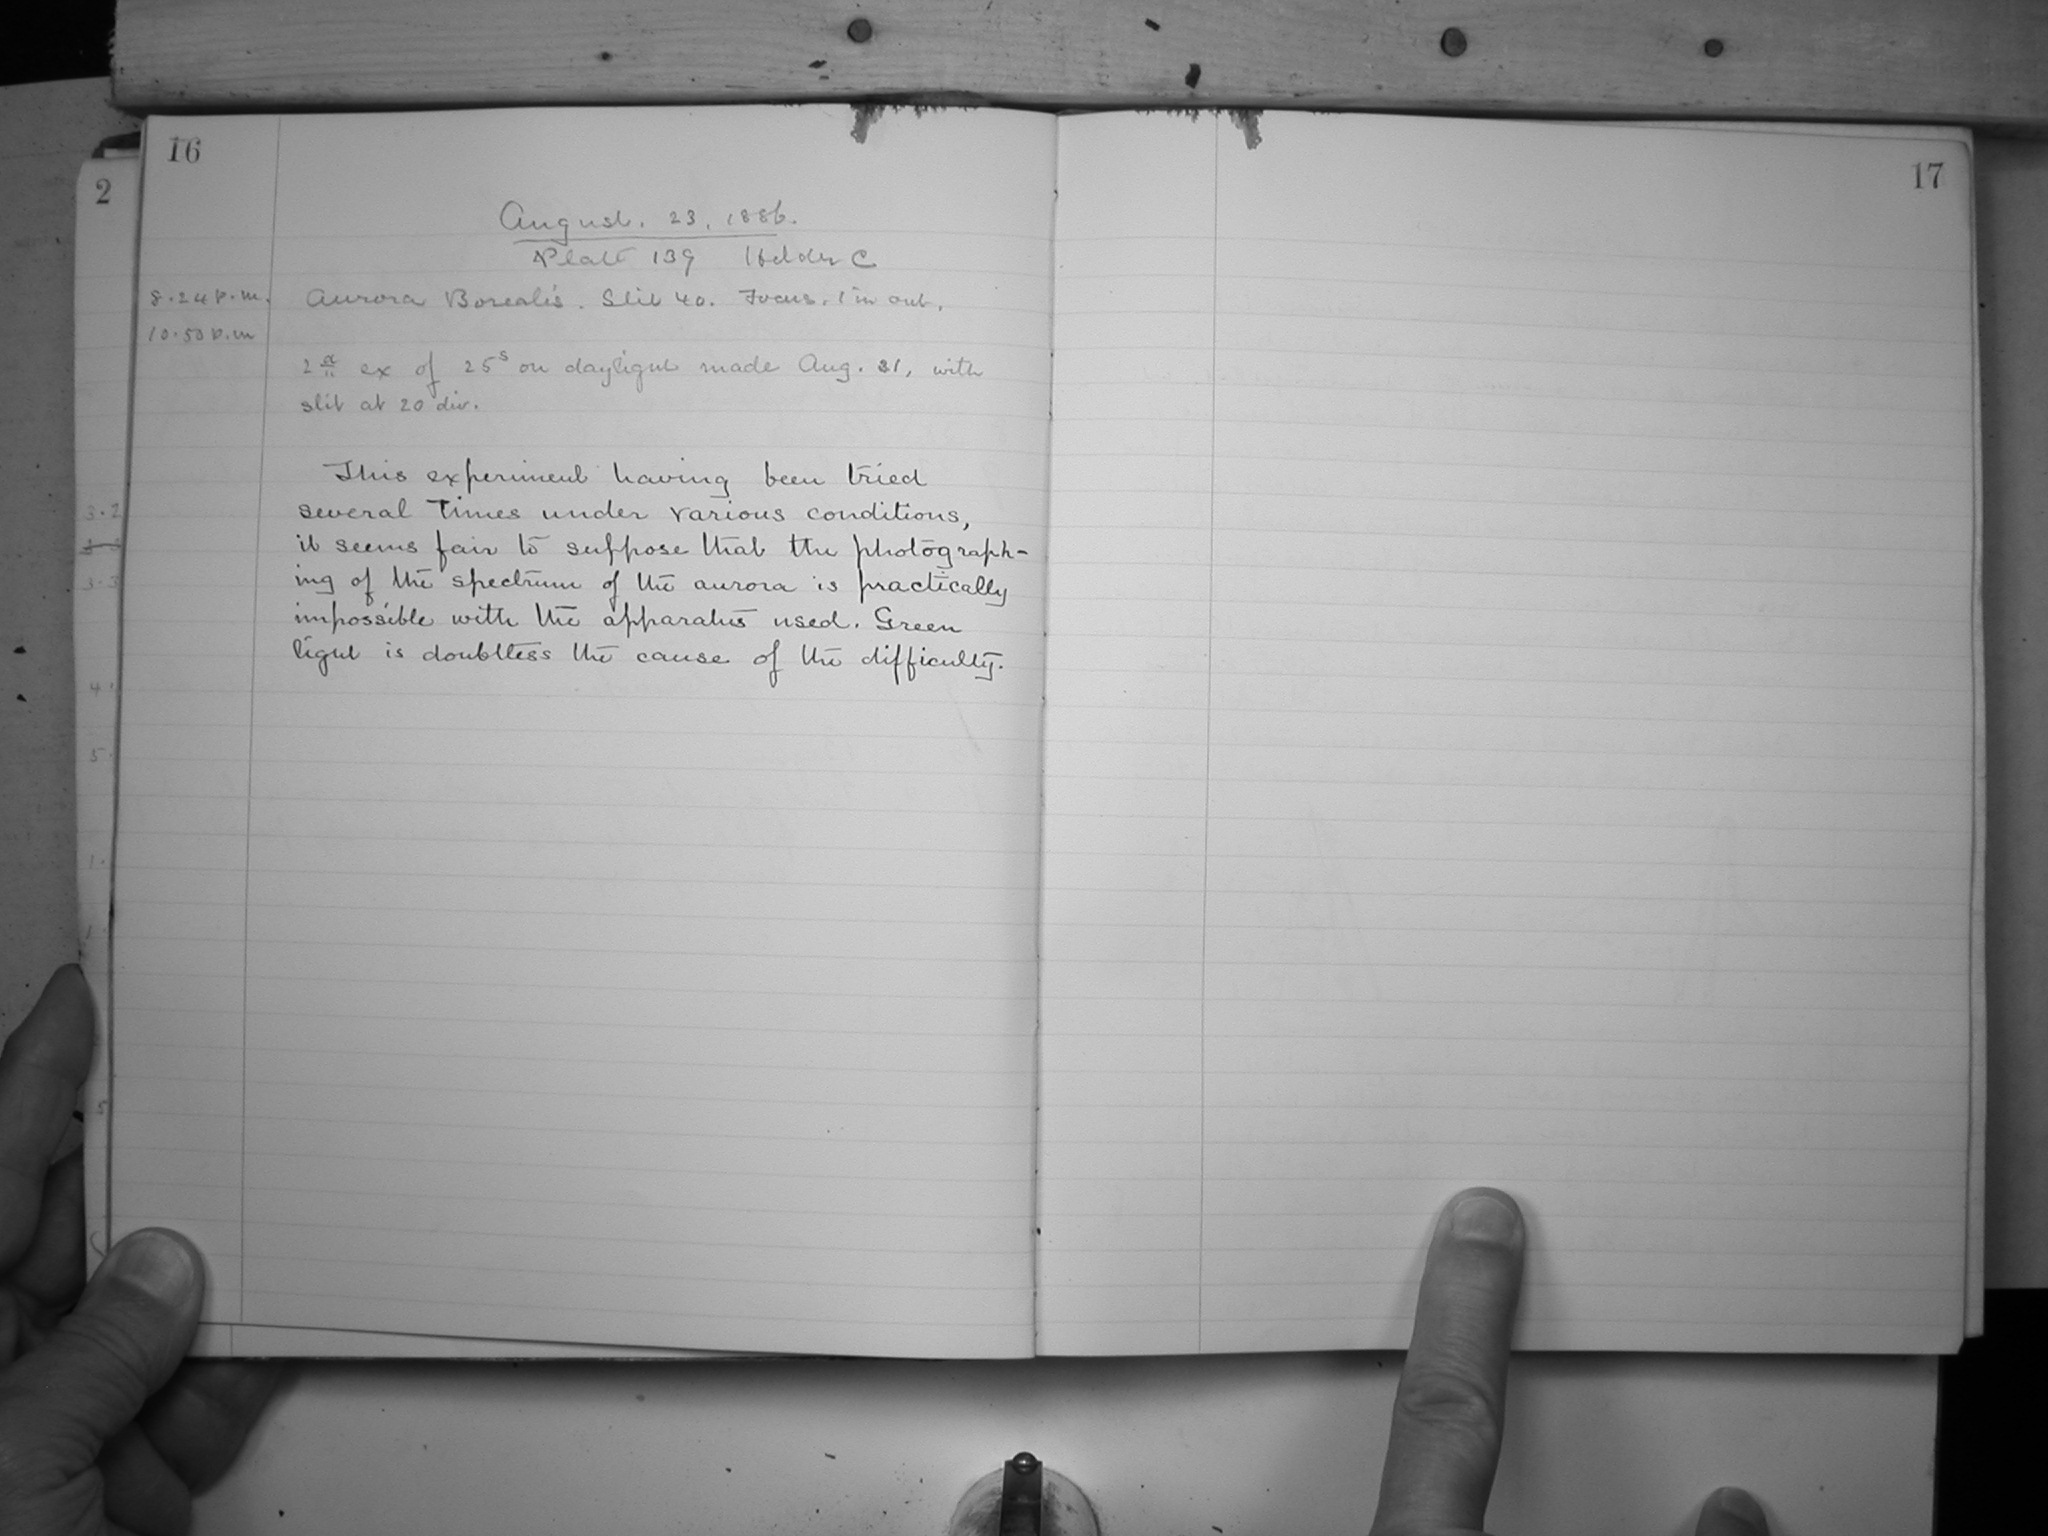 16
17
2
August. 23, 1886.
Plate 139 Holder C
8.24 p.m. Aurora Borealis. Slit 40. Focus. 1 in out.
10.50 p.m
2 ex of 25s on daylight made Aug. 21, with
slit at 20 div.
This experiment having been tried
several times under various conditions,
it seems fair to suppose that the photograph-
ing of the spectrum of the aurora is practically
impossible with the apparatus used. Green
light is doubtless the cause of the difficulty.